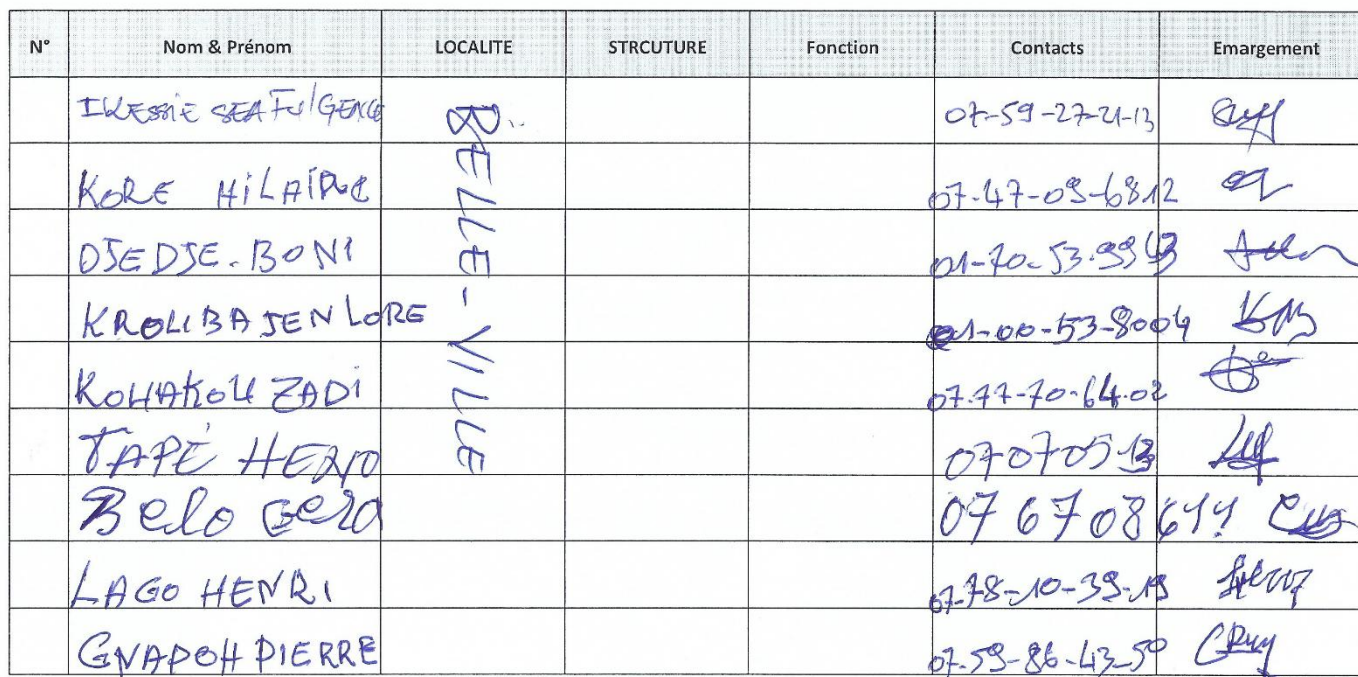 N° Nom & Prénom LOCALITE STRCUTURE Fonction Contacts Emargement
SEA FulGENCE 07-59-27-21-13
KORE HiLAIRE 07-47-09-6812
DJEDJE-BONI 01-70-53-99
KROUBA JEN LORE 01-00-53-8004
KOUAKOU ZADi 07-77-70-64-02
TAPÉ 07070513
Belo
LAGO HENRI 07-78-10-39-19
GNAPOH PIERRE 07-59-86-43-50
BELLE-VILLE